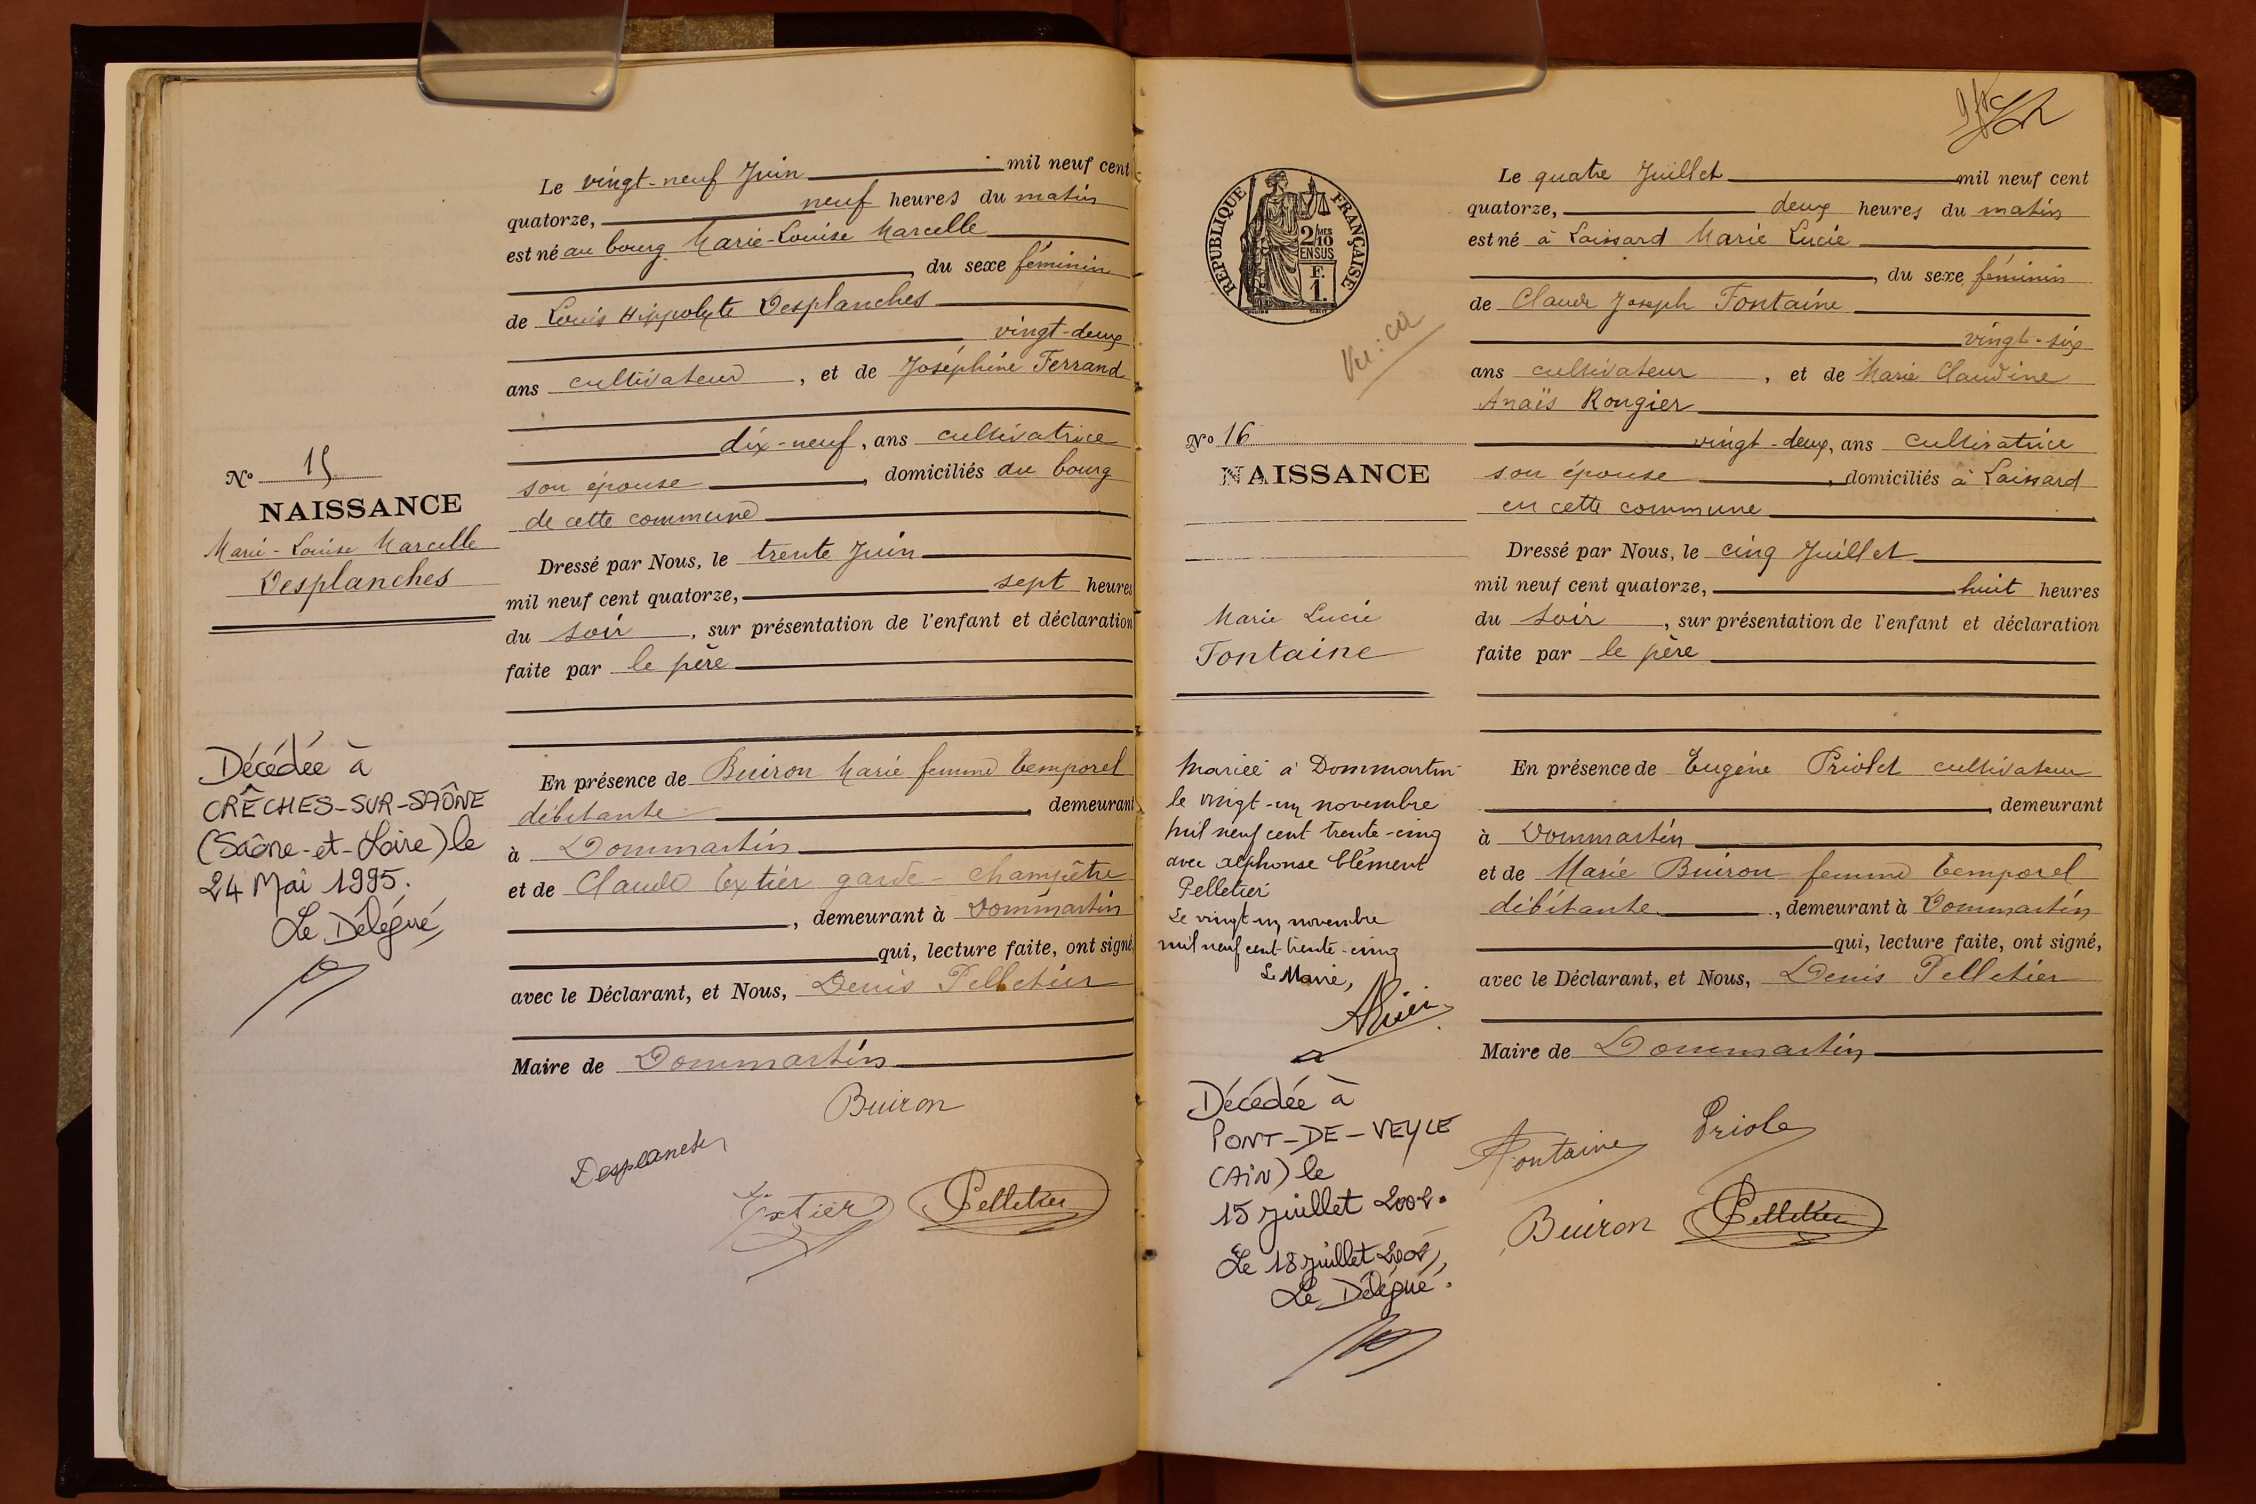 Le vingt-neuf Juin mil neuf cent
quatorze, neuf heures du matin
est né au bourg Marie-Louise Marcelle
, du sexe féminin
de Louis Hippolyte Desplanches
vingt-deux
ans cultivateur , et de Joséphine Ferrand
dix-neuf, ans cultivatrice
son épouse , domiciliés au bourg
de cette commune
Dressé par Nous, le trente Juin
mil neuf cent quatorze, sept heures
du soir , sur présentation de l'enfant et déclaration
faite par le père
En présence de Buiron Marie femme Temporel
débitante , demeurant
à Dommartin
et de Claude Extier garde-champêtre
, demeurant à Dommartin
qui, lecture faite, ont signé
avec le Déclarant, et Nous, Denis Pelletier
Maire de Dommartin
Buiron
Desplanches
Extier Pelletier
No 15
NAISSANCE
Marie-Louise Marcelle
Desplanches
Décédée à
CRÊCHES-SUR-SAÔNE
(Saône-et-Loire) le
24 Mai 1995.
Le Délégué,
RÉPUBLIQUE FRANÇAISE
2/10 MES
EN SUS
F.
1.
No 16
NAISSANCE
Marie Lucie
Fontaine
Mariée à Dommartin
le vingt-un novembre
mil neuf cent trente-cinq
avec Alphonse Clément
Pelletier
Le vingt un novembre
mil neuf cent trente-cinq
Le Maire,
Décédée à
PONT-DE-VEYLE
(AIN) le
15 juillet 2002.
Le 18 juillet 2002,
Le Délégué.
Le quatre Juillet mil neuf cent
quatorze, deux heures du matin
est né à Loissard Marie Lucie
, du sexe féminin
de Claude Joseph Fontaine
vingt-six
ans cultivateur , et de Marie Claudine
Anaïs Rongier
vingt-deux, ans cultivatrice
son épouse , domiciliés à Loissard
en cette commune
Dressé par Nous, le cinq Juillet
mil neuf cent quatorze, huit heures
du soir , sur présentation de l'enfant et déclaration
faite par le père
En présence de Eugène Priolet cultivateur
, demeurant
à Dommartin
et de Marie Buiron femme Temporel
débitante , demeurant à Dommartin
qui, lecture faite, ont signé,
avec le Déclarant, et Nous, Denis Pelletier
Maire de Dommartin
Fontaine Priole
Buiron Pelletier